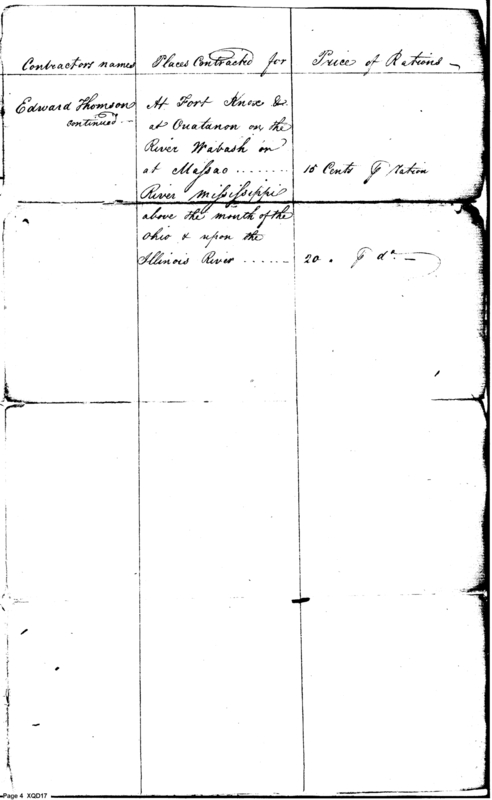 Contractors names Places Contracted for Price of Rations -
Edward Thomson At Fort Knox &
continued - at Ouatanon on the
River Wabash on
at Massac ........ 15 Cents ⅌ ration
River Mississippi
above the mouth of the
Ohio & upon the
Illinois River ...... 20 . ⅌ do. -
Page 4 XQD17